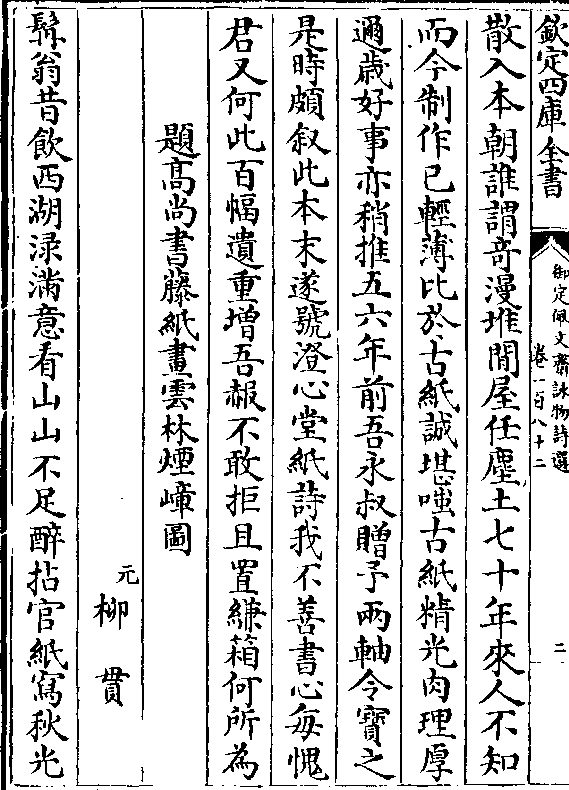 欽定四庫全書
御定佩文齋詠物詩選
卷一百八十二
二
散入本朝誰謂竒漫堆閒屋任塵土七十年來人不知
而今制作已輕薄比於古紙誠堪嗤古紙精光肉理厚
邇歲好事亦稍推五六年前吾永叔贈予兩軸令寶之
是時頗叙此本末遂號澄心堂紙詩我不善書心每愧
君又何此百幅遺重增吾赧不敢拒且置縑箱何所為
題髙尚書藤紙畫雲林煙嶂圖
元柳貫
髯翁昔飲西湖渌滿意看山山不足醉拈官紙寫秋光